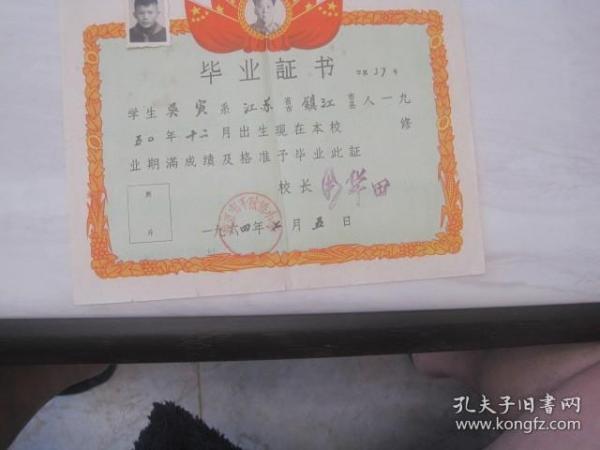 毕业証书
字第37号
学生吴寅系江苏省市镇江市县人一九
五〇年十二月出生现在本校 修
业期满成绩及格准予毕业此証
校长
照
片
一九六四年七月五日
孔夫子旧书网
www.kongfz.com